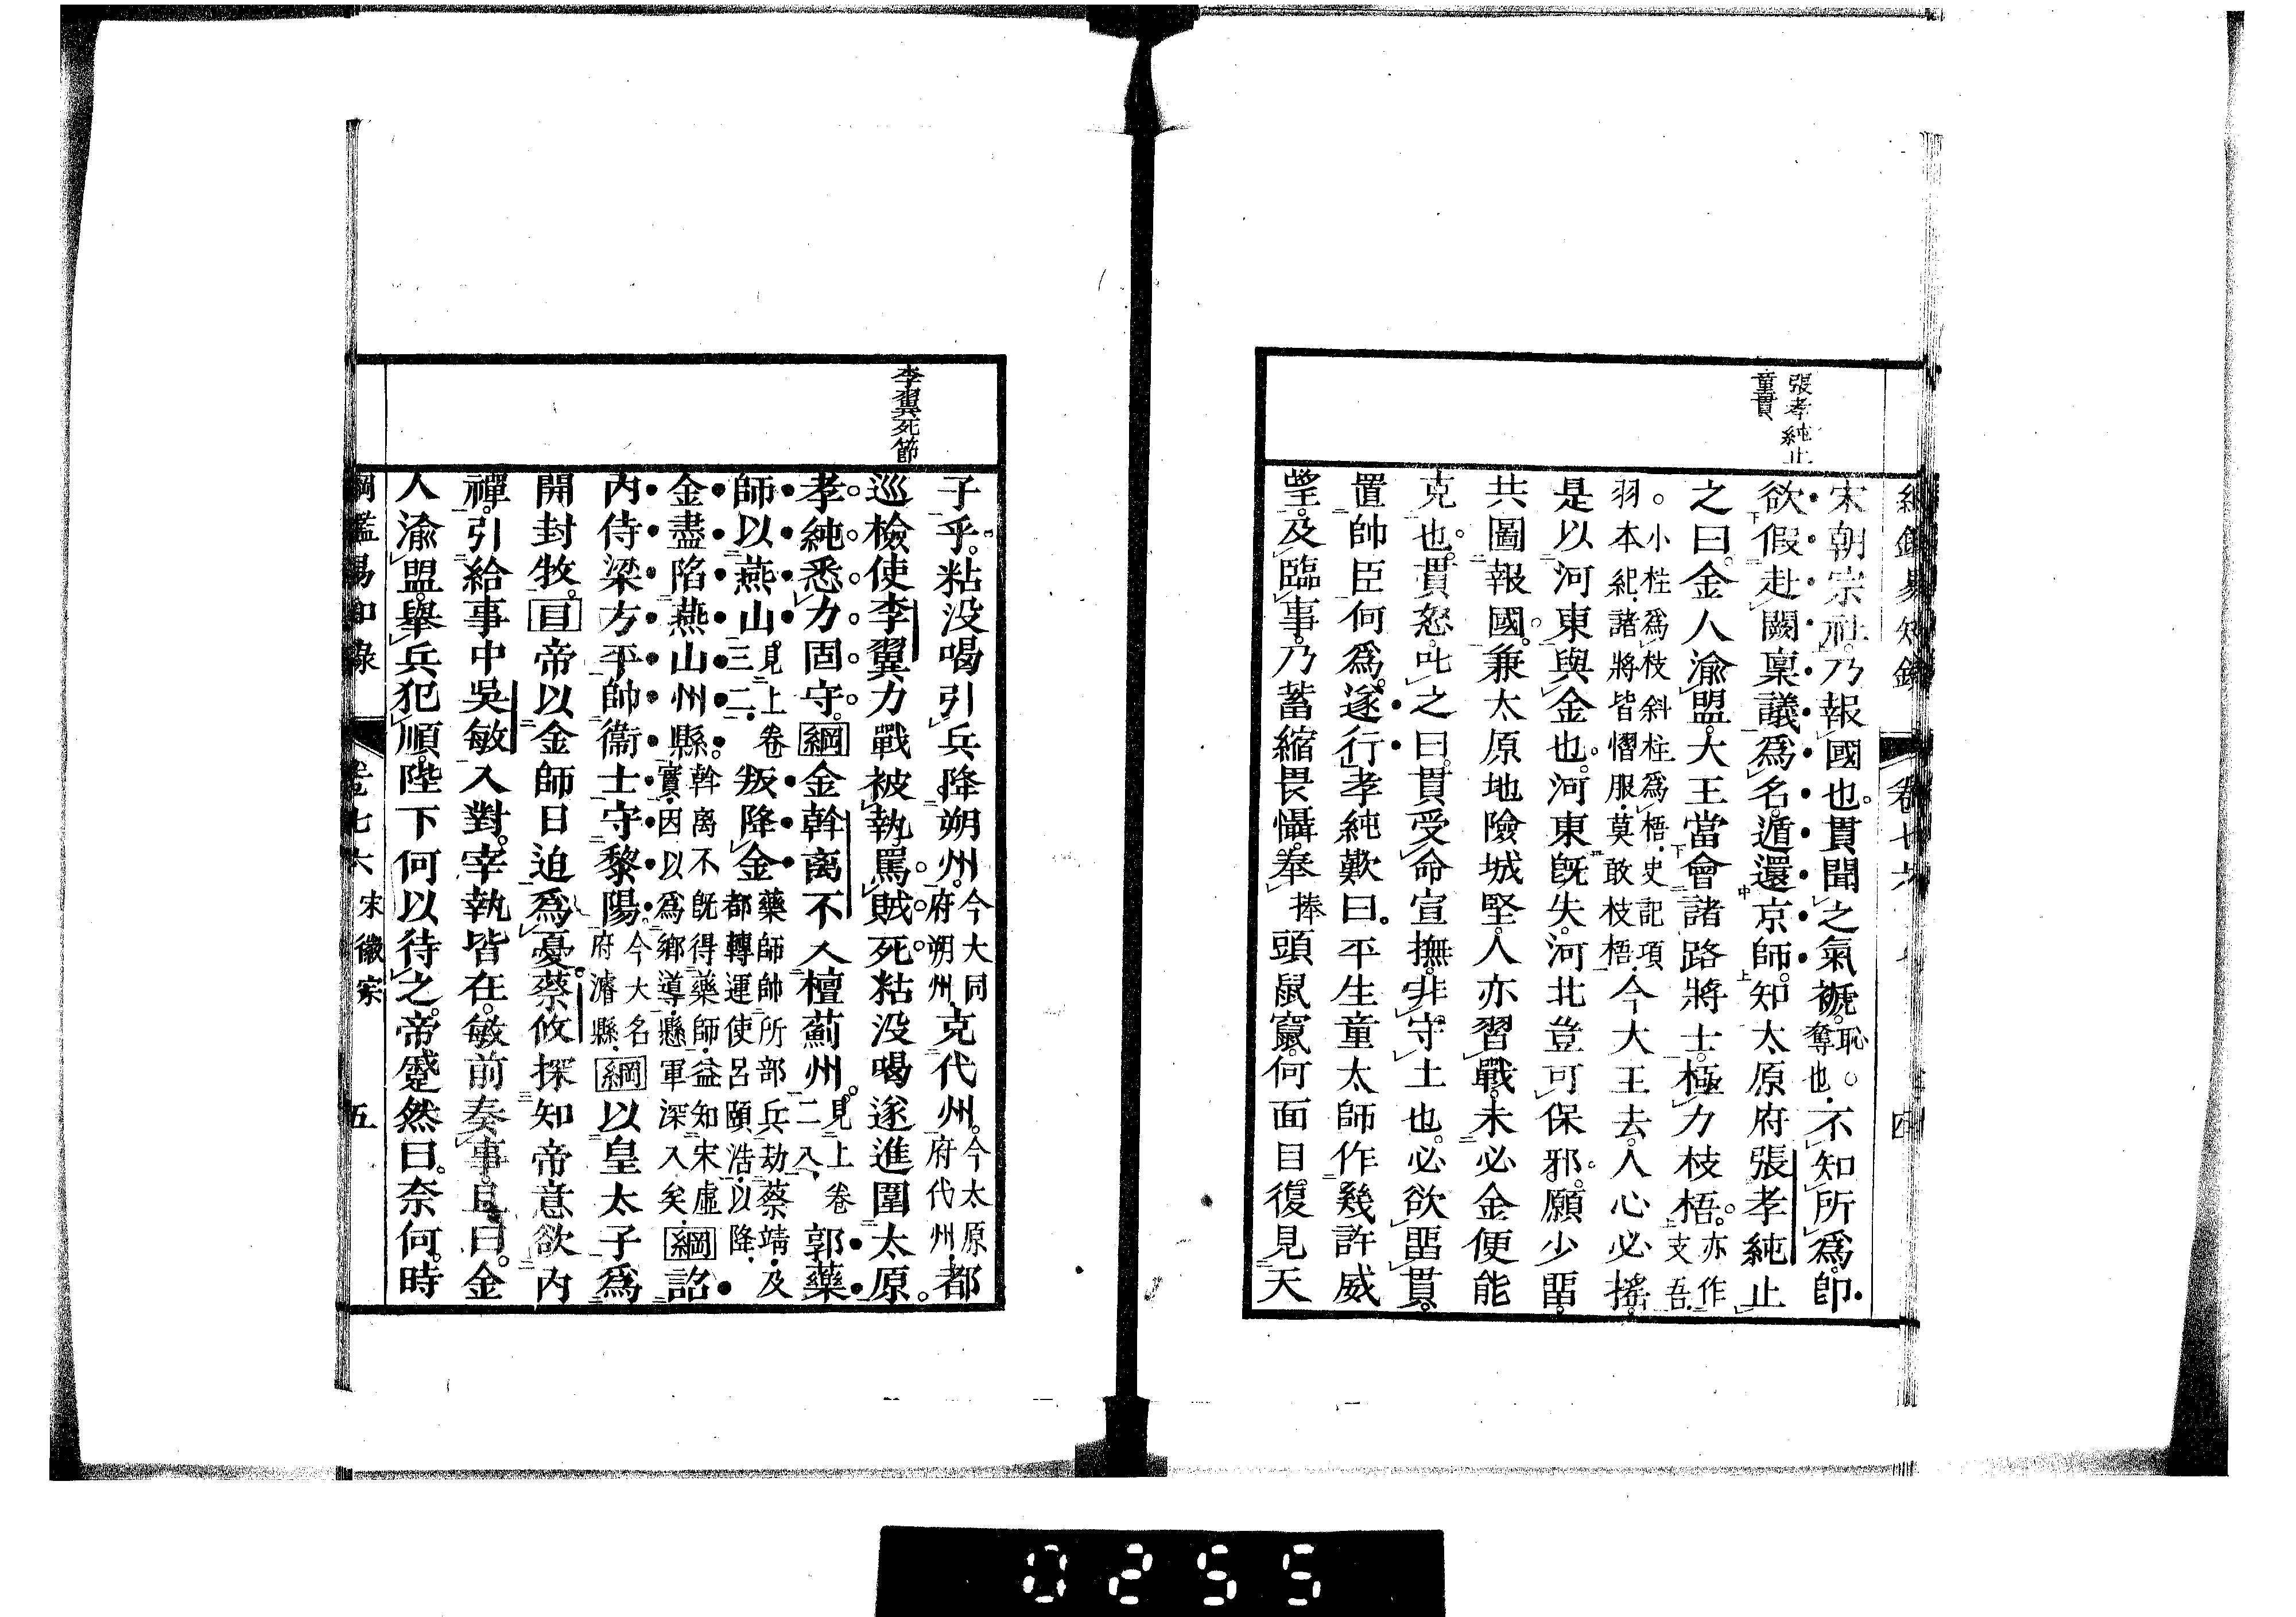 張孝純止
童貫
宋朝宗社乃報國也貫聞之氣褫恥奪也不知所爲卽
欲假赴闕稟議爲名遁還京師知太原府張孝純止
之曰金人渝盟大王當會諸路將士極力枝梧亦作支吾
小柱爲枝斜柱爲梧史記項羽本紀諸將皆慴服莫敢枝梧今大王去人心必搖
是以河東與金也河東旣失河北豈可保邪願少畱
共圖報國兼太原地險城堅人亦習戰未必金便能
克也貫怒叱之曰貫受命宣撫非守土也必欲畱貫
置帥臣何爲遂行孝純歎曰平生童太師作幾許威
望及臨事乃蓄縮畏懾奉捧頭鼠竄何面目復見天
卷七十六
四
李翼死節
子乎粘没喝引兵降朔州今大同府朔州克代州今太原府代州都
巡檢使李翼力戰被執罵賊死粘没喝遂進圍太原
孝純悉力固守綱金斡离不入檀薊州見上卷二八郭藥
師以燕山見上卷三二叛降金藥師帥所部兵劫蔡靖及都轉運使呂頤浩以降
金盡陷燕山州縣斡离不旣得藥師益知宋虛實因以爲鄉導懸軍深入矣綱詔
內侍梁方平帥衞士守黎陽今大名府濬縣綱以皇太子爲
開封牧目帝以金師日迫爲憂蔡攸探知帝意欲內
禪引給事中吳敏入對宰執皆在敏前奏事且曰金
人渝盟舉兵犯順陛下何以待之帝蹙然曰奈何時
綱鑑易知錄 卷七六 宋徽宗 五
0255